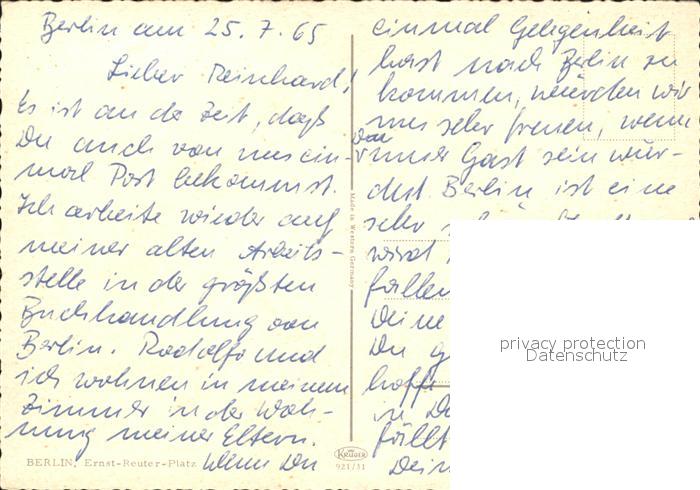 Berlin am 25. 7. 65
Lieber Reinhard!
Es ist an der Zeit, daß
Du auch von uns ein-
mal Post bekommst.
Ich arbeite wieder auf
meiner alten Arbeits-
stelle in der größten
Buchhandlung von
Berlin. Rodolfo und
ich wohnen in meinem
Zimmer in der Woh-
nung meiner Eltern.
BERLIN, Ernst-Reuter-Platz
Wenn Du
Made in Western Germany
KRÜGER
921/31
einmal Gelegenheit
hast nach Berlin zu
kommen, würden wir
uns sehr freuen, wenn
Du
unser Gast sein wür-
dest. Berlin ist eine
sehr
wird
gefallen
Deine
Du g
hoffe
in De
fällt
Dein
privacy protection
Datenschutz